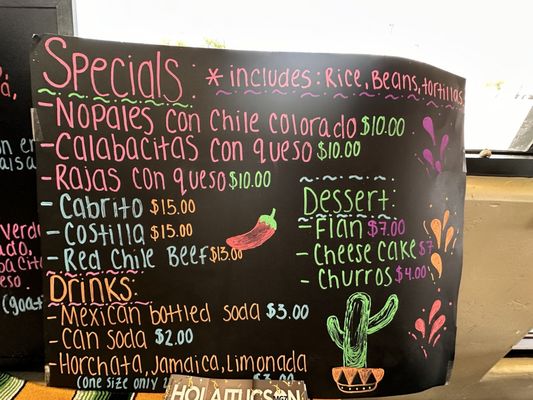 Specials: * includes: Rice, Beans, tortillas
- Nopales con chile colorado $10.00
- Calabacitas con queso $10.00
- Rajas con queso $10.00
- Cabrito $15.00
- Costilla $15.00
- Red Chile Beef $13.00
Dessert:
- Flan $7.00
- Cheese cake $7
- Churros $4.00
Drinks:
- Mexican bottled soda $3.00
- Can soda $2.00
- Horchata, Jamaica, Limonada
(one size only) $3.00
HOLA!TUCSON
(goat